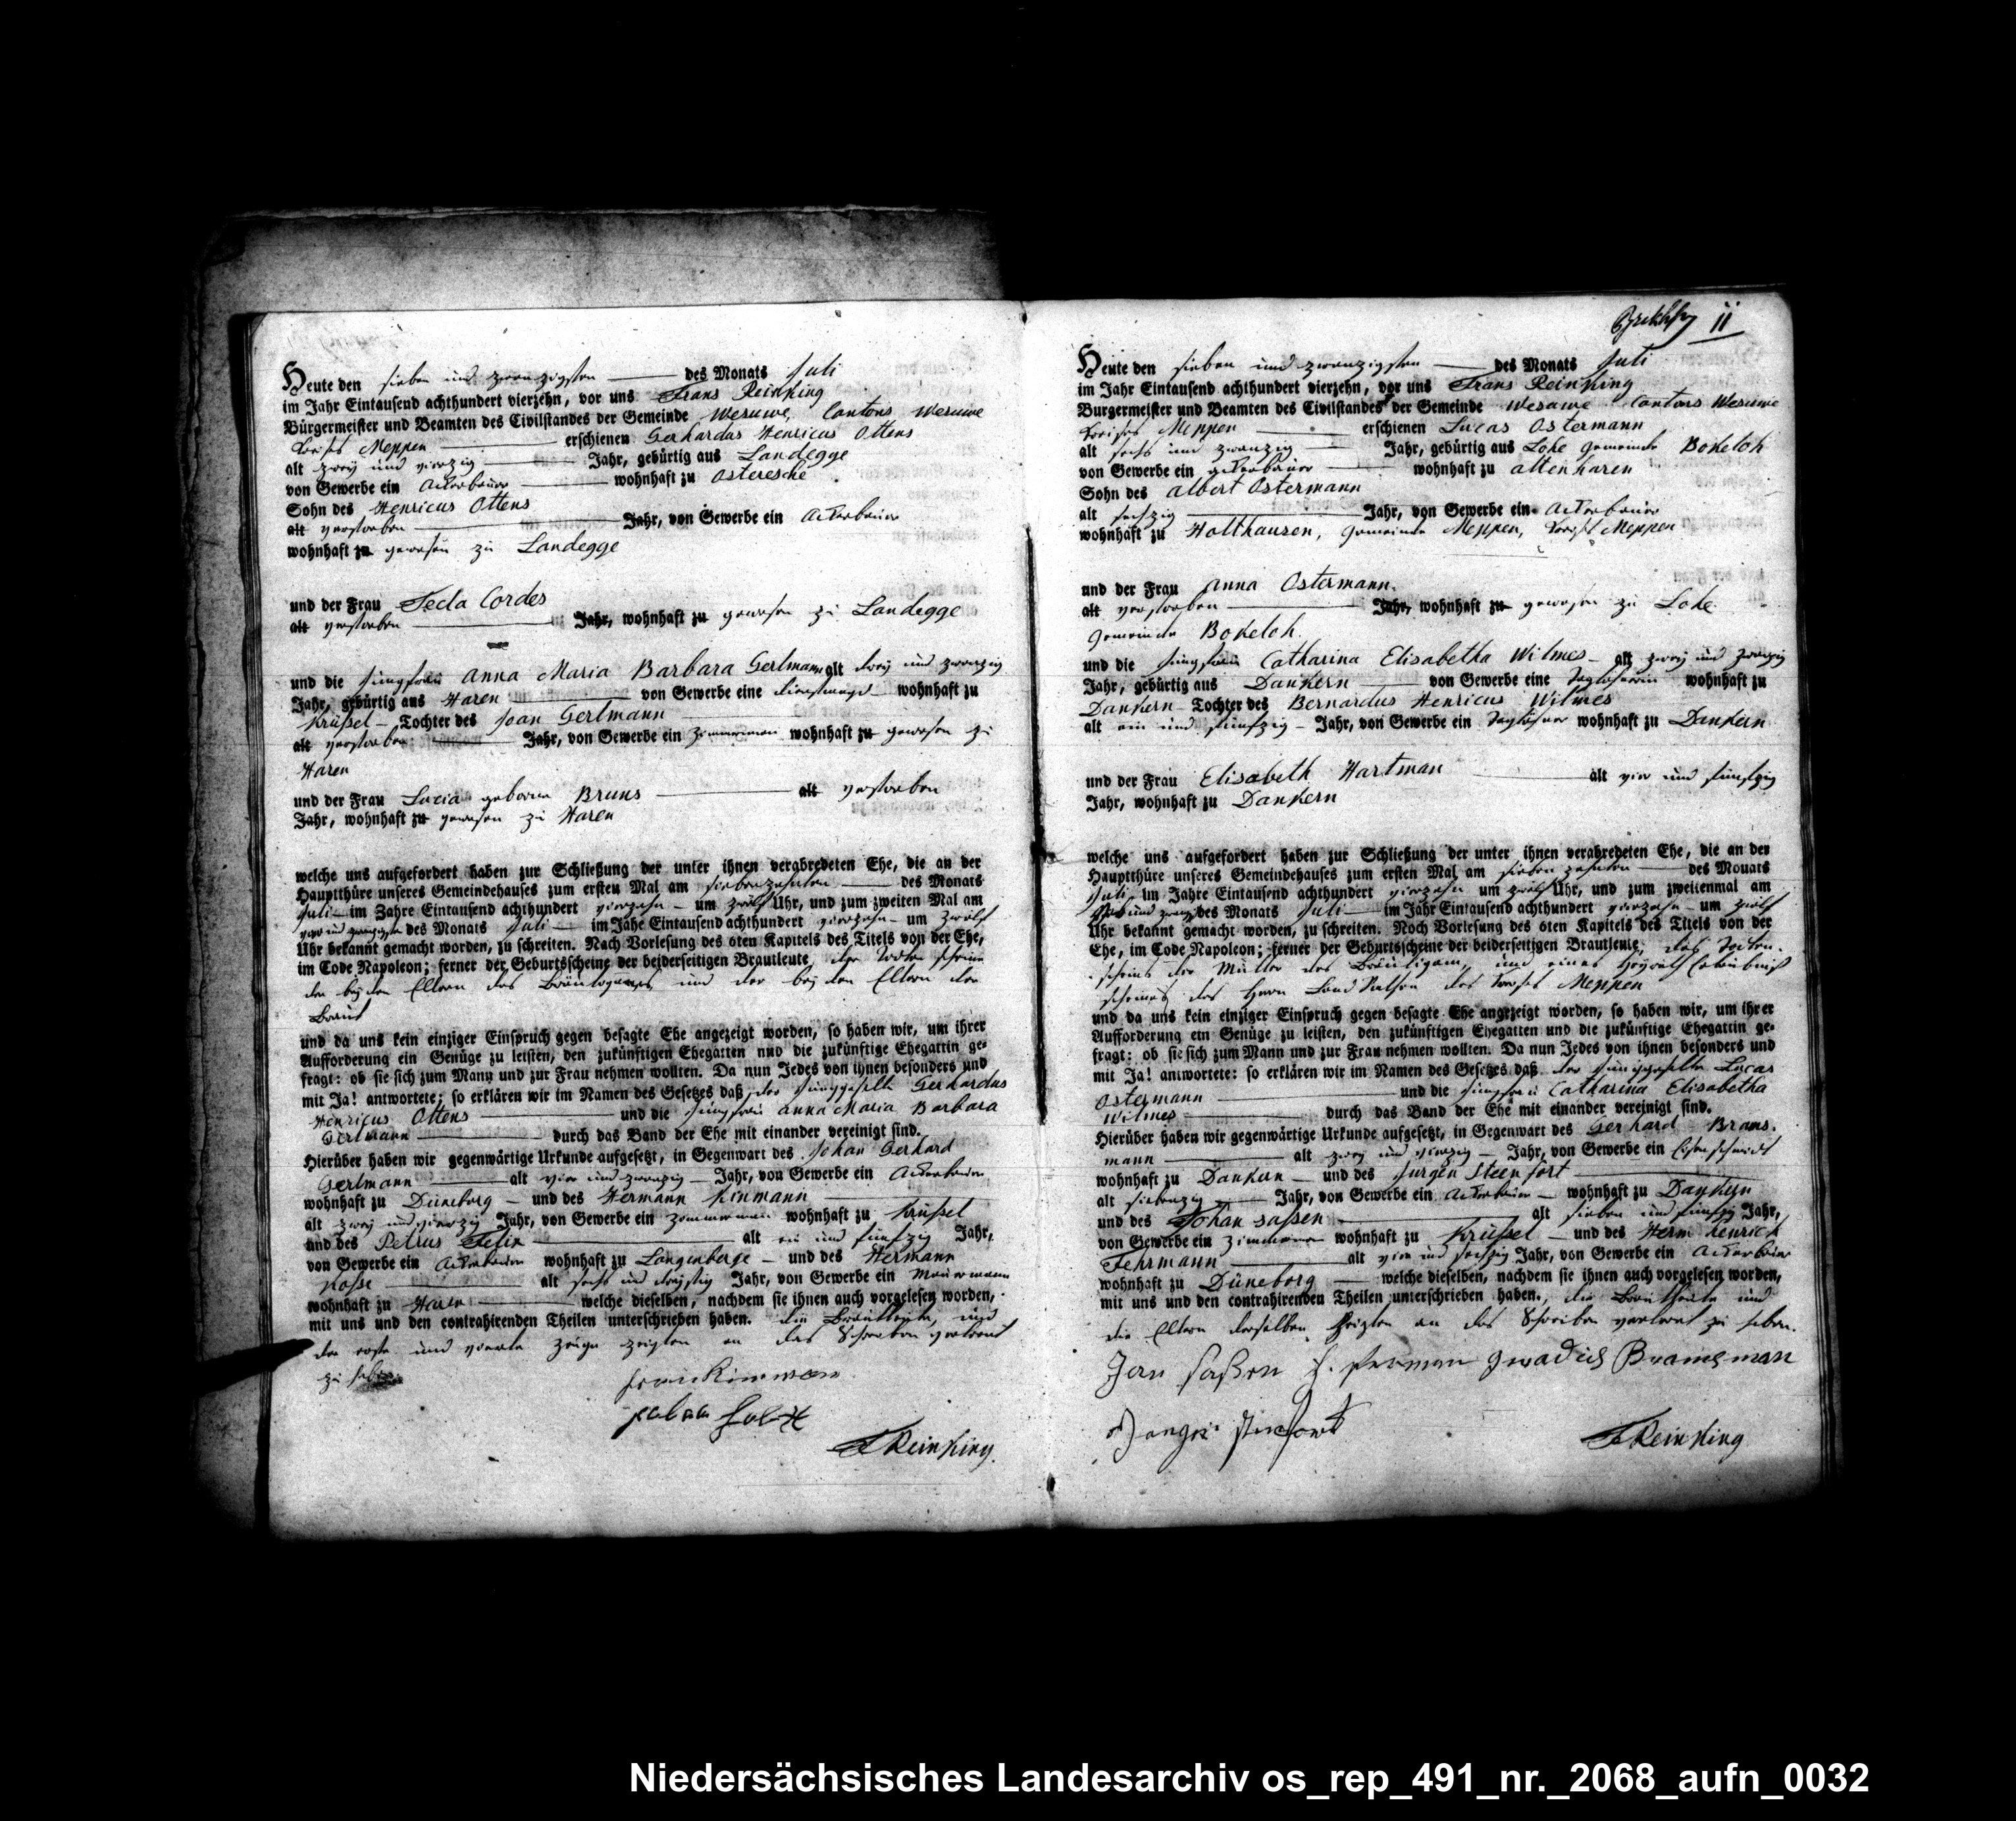 Heute den sieben und zwanzigsten des Monats Juli
im Jahr Eintausend achthundert vierzehn, vor uns Frans Reinking
Bürgermeister und Beamten des Civilstandes der Gemeinde Wesuwe, Cantons Wesuwe
Kreises Meppen erschienen Gerhardus Henricus Ottens
alt zwey und vierzig Jahr, gebürtig aus Landegge
von Gewerbe ein Ackerbauer wohnhaft zu Osteresche
Sohn des Henricus Ottens
alt verstorben Jahr, von Gewerbe ein Ackerbauer
wohnhaft zu gewesen zu Landegge
und der Frau Tecla Cordes
alt verstorben Jahr, wohnhaft zu gewesen zu Landegge
und die Jungfrau Anna Maria Barbara Gerlmann alt drey und zwanzig
Jahr, gebürtig aus Haren von Gewerbe eine Dienstmagd wohnhaft zu
Krüßel Tochter des Joan Gerlmann
alt verstorben Jahr, von Gewerbe ein Zimmerman wohnhaft zu gewesen zu
Haren
und der Frau Lucia geborne Bruns alt verstorben
Jahr, wohnhaft zu gewesen zu Haren
welche uns aufgefordert haben zur Schließung der unter ihnen verabredeten Ehe, die an der
Hauptthüre unseres Gemeindehauses zum ersten Mal am siebenzehnten des Monats
Juli im Jahre Eintausend achthundert vierzehn um zwölf Uhr, und zum zweiten Mal am
vier und zwanzigsten des Monats Juli im Jahe Eintausend achthundert vierzehn um zwölf
Uhr bekannt gemacht worden, zu schreiten. Nach Vorlesung des 6ten Kapitels des Titels von der Ehe,
im Code Napoleon; ferner der Geburtsscheine der beiderseitigen Brautleute, der Todten scheine
der beyden Eltern des Bräutigams und der beyden Eltern der
Braut
und da uns kein einziger Einspruch gegen besagte Ehe angezeigt worden, so haben wir, um ihrer
Aufforderung ein Genüge zu leisten, den zukünftigen Ehegatten und die zukünftige Ehegattin ge-
fragt: ob sie sich zum Mann und zur Frau nehmen wollten. Da nun Jedes von ihnen besonders und
mit Ja! antwortete; so erklären wir im Namen des Gesetzes daß der Junggeselle Gerhardus
Henricus Ottens und die Jungfrau Anna Maria Barbara
Gerlmann durch das Band der Ehe mit einander vereinigt sind.
Hierüber haben wir gegenwärtige Urkunde aufgesetzt, in Gegenwart des Johan Gerhard
Gerlmann alt vier und zwanzig Jahr, von Gewerbe ein Ackerbauer
wohnhaft zu Düneborg und des Hermann Kinmann
alt zwey und vierzig Jahr, von Gewerbe ein Zimmerman wohnhaft zu Krüßel
und des Petrus Felix alt ein und fünfzig Jahr,
von Gewerbe ein Ackerbauer wohnhaft zu Langenberge und des Hermann
Kosse alt sechs und dreyßig Jahr, von Gewerbe ein Mauermann
wohnhaft zu Haren welche dieselben, nachdem sie ihnen auch vorgelesen worden,
mit uns und den contrahirenden Theilen unterschrieben haben. die Brautleute, und
der erste und vierte Zeuge zeigten an das Schreiben verlernt
zu haben
F Reinking
11
Heute den sieben und zwanzigsten des Monats Juli
im Jahr Eintausend achthundert vierzehn, vor uns Frans Reinking
Burgermeister und Beamten des Civilstandes der Gemeinde Wesuwe Cantons Wesuwe
Kreises Meppen erschienen Lucas Ostermann
alt sechs und zwanzig Jahr, gebürtig aus Lohe Gemeinde Bokeloh
von Gewerbe ein Ackerbauer wohnhaft zu Altenharen
Sohn des Albert Ostermann
alt sechzig Jahr, von Gewerbe ein Ackerbauer
wohnhaft zu Holthausen, Gemeinde Meppen, Kreises Meppen
und der Frau Anna Ostermann.
alt verstorben Jahr, wohnhaft zu gewesen zu Lohe
Gemeinde Bokeloh.
und die Jungfrau Catharina Elisabetha Wilmes alt zwey und zwanzig
Jahr, gebürtig aus Dankern von Gewerbe eine Taglöhnerin wohnhaft zu
Dankern Tochter des Bernardus Henricus Wilmes
alt ein und fünfzig Jahr, von Gewerbe ein Taglöhner wohnhaft zu Dankern
und der Frau Elisabeth Hartman alt vier und fünfzig
Jahr, wohnhaft zu Dankern
welche uns aufgefordert haben zur Schließung der unter ihnen verabredeten Ehe, die an der
Hauptthüre unseres Gemeindehauses zum ersten Mal am sieben zehnten des Monats
Juli im Jahre Eintausend achthundert vierzehn um zwölf Uhr, und zum zweitenmal am
vier und zwanzigsten des Monats Juli im Jahr Eintausend achthundert vierzehn um zwölf
Uhr bekannt gemacht worden, zu schreiten. Noch Vorlesung des 6ten Kapitels des Titels von der
Ehe, im Code Napoleon; ferner der Geburtsscheine der beiderseitigen Brautleute, des Todten-
scheins der Mutter des Bräutigam, und eines Heyraths Erlaubniß
scheines des Herrn Landrathen des Kreises Meppen
und da uns kein einziger Einspruch gegen besagte Ehe angezeigt worden, so haben wir, um ihrer
Aufforderung ein Genüge zu leisten, den zukünftigen Ehegatten und die zukünftige Ehegattin ge-
fragt: ob sie sich zum Mann und zur Frau nehmen wollten. Da nun Jedes von ihnen besonders und
mit Ja! antwortete: so erklären wir im Namen des Gesetzes daß der Junggeselle Lucas
Ostermann und die Jungfrau Catharina Elisabetha
Wilmes durch das Band der Ehe mit einander vereinigt sind.
Hierüber haben wir gegenwärtige Urkunde aufgesetzt, in Gegenwart des Gerhard Brams-
mann alt zwey und vierzig Jahr, von Gewerbe ein Eisenschmidt
wohnhaft zu Dankern und des Jurgen Steenfort
alt siebenzig Jahr, von Gewerbe ein Ackerbauer wohnhaft zu Dankern
und des Johan Saßen alt sieben und fünfzig Jahr,
von Gewerbe ein Zimmerer wohnhaft zu Krüßel und des Herm Henrich
Fehrmann alt vier und sechzig Jahr, von Gewerbe ein Ackerbauer
wohnhaft zu Düneborg welche dieselben, nachdem sie ihnen auch vorgelesen worden,
mit uns und den contrahirenden Theilen unterschrieben haben., die Brautleute und
die Eltern derselben zeigten an das Schreiben verlernt zu haben.
Jan Saßen Bramsman
F Reinking
Niedersächsisches Landesarchiv os_rep_491_nr._2068_aufn_0032